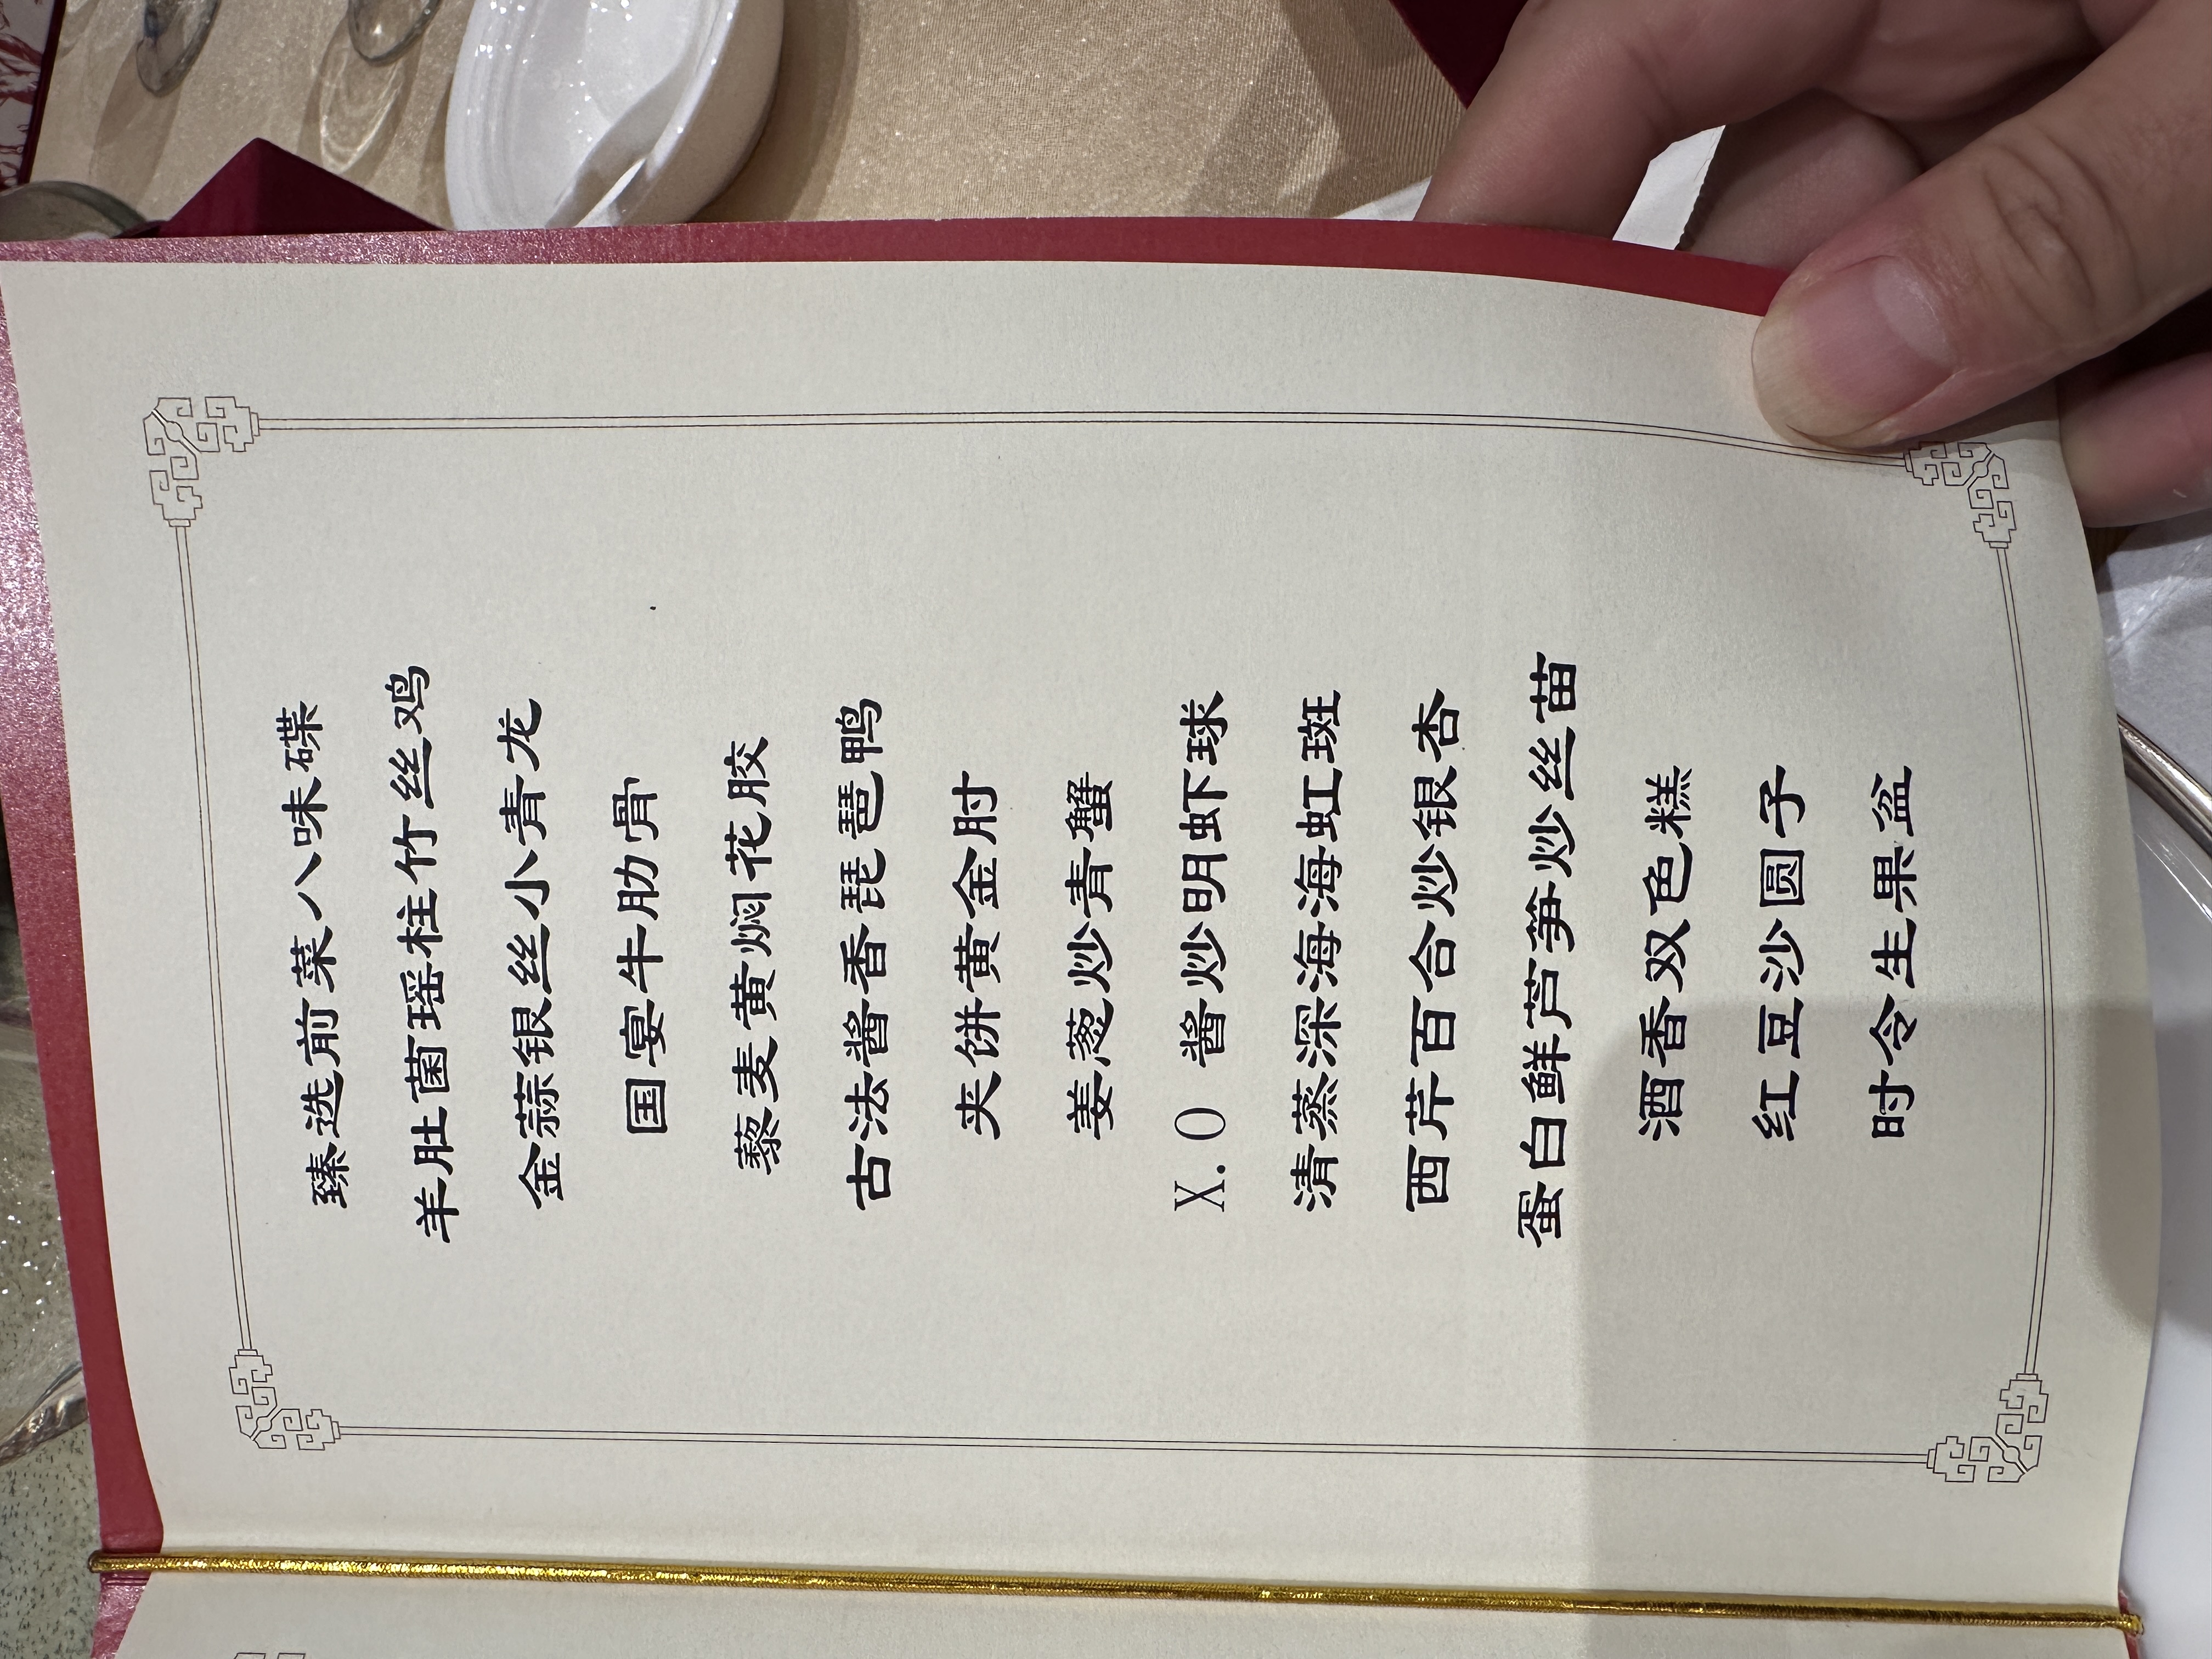 臻选前菜八味碟
羊肚菌瑶柱竹丝鸡
金蒜银丝小青龙
国宴牛肋骨
藜麦黄焖花胶
古法酱香琵琶鸭
夹饼黄金肘
姜葱炒青蟹
X.O 酱炒明虾球
清蒸深海海虹斑
西芹百合炒银杏
蛋白鲜芦笋炒丝苗
酒香双色糕
红豆沙圆子
时令生果盆